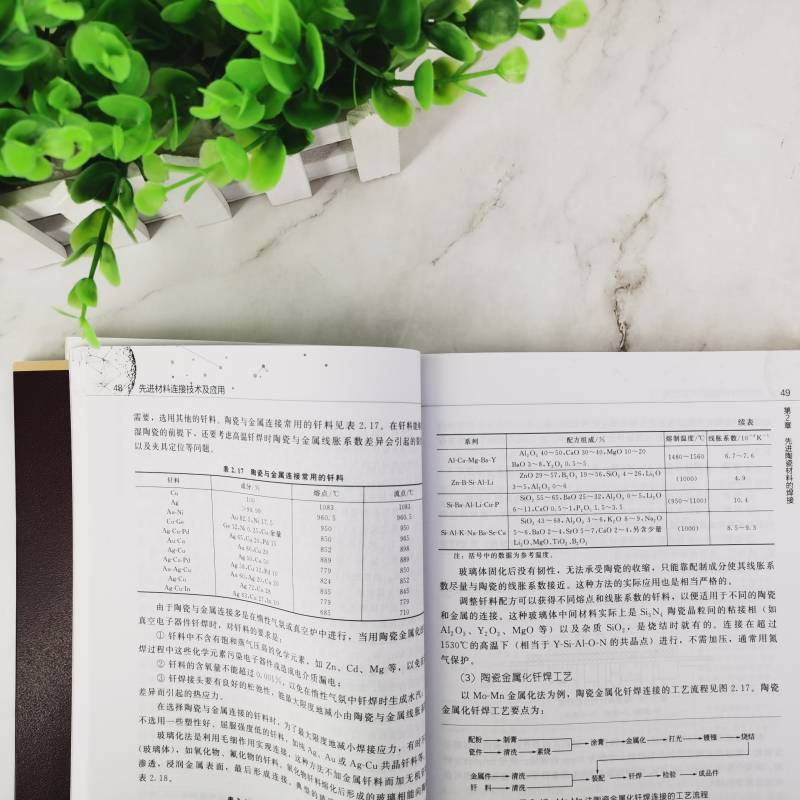 48 先进材料连接技术及应用
需要，选用其他的钎料。陶瓷与金属连接常用的钎料见表 2.17。在钎料能
湿陶瓷的前提下，还要考虑高温钎焊时陶瓷与金属线胀系数差异会引起的
以及夹具定位等问题。
表 2.17 陶瓷与金属连接常用的钎料
钎料 成分/% 熔点/℃ 流点/℃
Cu 100 1083 1083
Ag >99.99 960.5 960.5
Au-Ni Au 82.5,Ni 17.5 950 950
Cu-Ge Ge 12,Ni 0.25,Cu 余量 850 965
Ag-Cu-Pd Ag 65,Cu 20,Pd 15 852 898
Au-Cu Au 80,Cu 20 889
Ag-Cu Ag 50,Cu 50 779 850
Ag-Cu-Pd Ag 58,Cu 32,Pd 10 824 852
Au-Ag-Cu Au 60,Ag 20,Cu 20 835 845
Ag-Cu Ag 72,Cu 28 779 779
Ag-Cu-In Ag 63,Cu 27,In 10 685 710
由于陶瓷与金属连接多是在惰性气氛或真空炉中进行，当用陶瓷金属化
真空电子器件钎焊时，对钎料的要求是：
① 钎料中不含有饱和蒸气压高的化学元素，如 Zn、Cd、Mg 等，以免
焊过程中这些化学元素污染电子器件或造成电介质漏电；
② 钎料的含氧量不能超过 0.001%，以免在惰性气氛中钎焊时生成水汽
③ 钎焊接头要有良好的松弛性，能最大限度地减小由陶瓷与金属线胀
差异而引起的热应力。
在选择陶瓷与金属连接的钎料时，为了最大限度地减小焊接应力，有时
不选用一些塑性好、屈服强度低的钎料，如纯 Ag、Au 或 Ag-Cu 共晶钎料等
玻璃化法是利用毛细作用实现连接，这种方法不加金属钎料而加无机
（玻璃体），如氧化物、氟化物的钎料。氧化物钎料熔化后形成的玻璃相能向
渗透，浸润金属表面，最后形成连接。典型的
表 2.18。
49
第2章 先进陶瓷材料的焊接
续表
系列 配方组成/% 熔制温度/℃ 线胀系数/10⁻⁶K⁻¹
Al-Ca-Mg-Ba-Y Al₂O₃ 40～50,CaO 30～40,MgO 10～20
BaO 3～8,Y₂O₃ 0.5～5 1480~1560 6.7~7.6
Zn-B-Si-Al-Li ZnO 29～57,B₂O₃ 19～56,SiO₂ 4～26,Li₂O
3～5,Al₂O₃ 0～6 (1000) 4.9
Si-Ba-Al-Li-Co-P SiO₂ 55～65,BaO 25～32,Al₂O₃ 0～5,Li₂O
6～11,CaO 0.5～1,P₂O₅ 1.5～3.5 (950~1100) 10.4
Si-Al-K-Na-Ba-Sr-Ca SiO₂ 43～68,Al₂O₃ 3～6,K₂O 8～9,Na₂O
5～6,BaO 2～4,SrO 5～7,CaO 2～4,另含少量
Li₂O、MgO、TiO₂、B₂O₃ (1000) 8.5~9.3
注：括号中的数据为参考温度。
玻璃体固化后没有韧性，无法承受陶瓷的收缩，只能靠配制成分使其线胀系
数尽量与陶瓷的线胀系数接近。这种方法的实际应用也是相当严格的。
调整钎料配方可以获得不同熔点和线胀系数的钎料，以便适用于不同的陶瓷
和金属的连接。这种玻璃体中间材料实际上是 Si₃N₄ 陶瓷晶粒间的粘接相（如
Al₂O₃、Y₂O₃、MgO 等）以及杂质 SiO₂，是烧结时就有的。连接在超过
1530℃的高温下（相当于 Y-Si-Al-O-N 的共晶点）进行，不需加压，通常用氮
气保护。
（3）陶瓷金属化钎焊工艺
以 Mo-Mn 金属化法为例，陶瓷金属化钎焊连接的工艺流程见图 2.17。陶瓷
金属化钎焊工艺要点为：
配粉→制膏→涂膏→金属化→打光→镀镍→烧结
瓷件→清洗→素烧
金属件→清洗→装配→钎焊→检验→成品件
钎 料→清洗
Mo-Mn 法陶瓷金属化钎焊连接的工艺流程